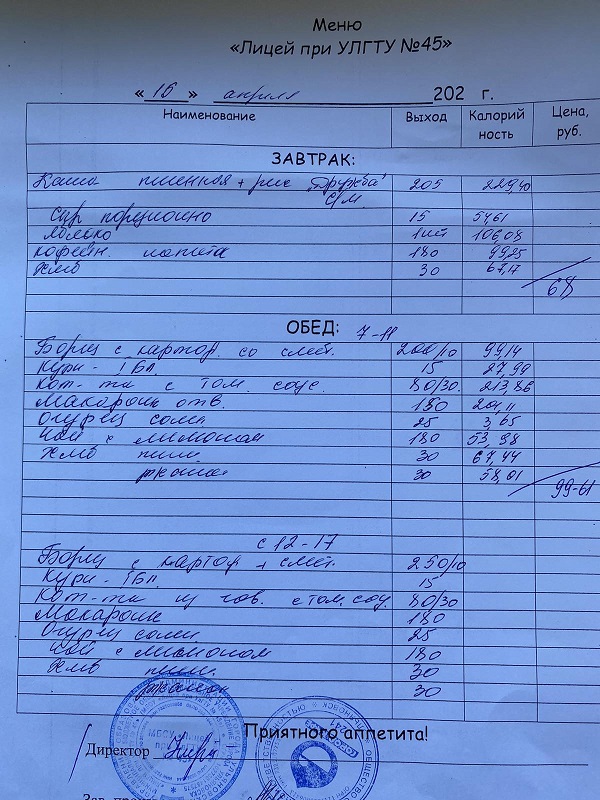 Меню
«Лицей при УЛГТУ №45»
«16» апреля 202 г.
Наименование Выход Калорий Цена,
ность руб.
ЗАВТРАК:
Каша пшенная + рис "Дружба" 205 229,40
с/м.
Сыр порционно 15 54,61
Яблоко 1шт 106,08
Кофейн. напита 180 99,25
Хлеб 30 67,17
68
ОБЕД: 7-11
Борщ с картоф. со смет. 200/10 99,14
Куры - 1бл. 15 27,99
Кот-та с том. соус. 80/30 213,86
Макароны отв. 180 201,11
Огурец солен 25 3,65
Чай с лимоном 180 53,98
Хлеб пшен. 30 67,44
ржаной 30 58,01
99-61
с 12-17
Борщ с картоф + смет. 250/10
Куры - 1бл. 15
Кот-та из гов. с том. соу. 80/30
Макароны 180
Огурец солен 25
Чай с лимоном 180
Хлеб пшен. 30
ржаной 30
Приятного аппетита!
Директор